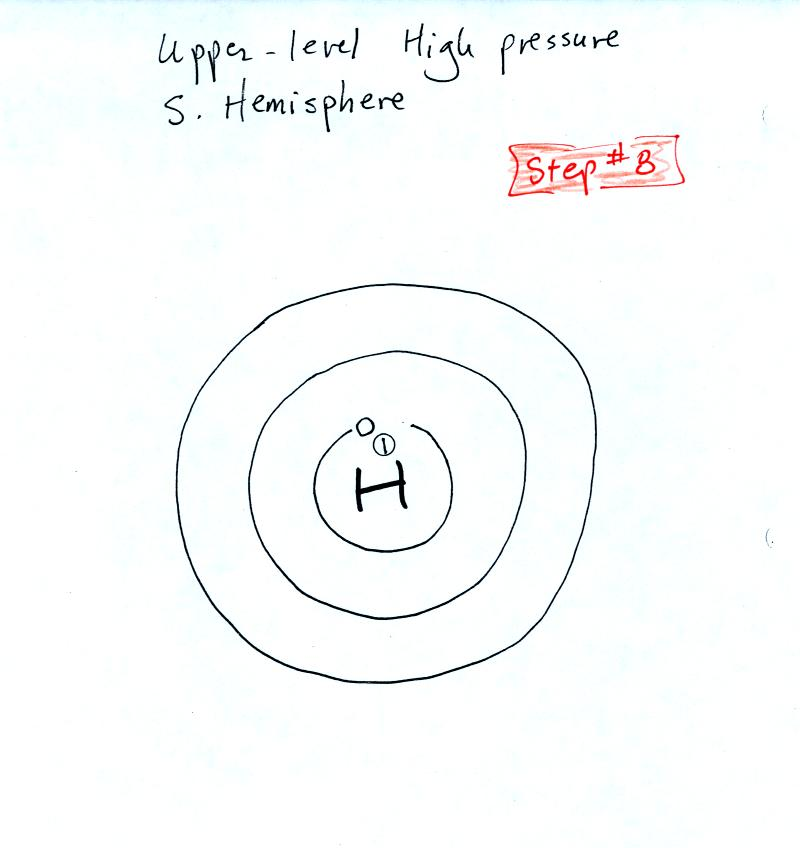 Upper-level High pressure
S. Hemisphere
Step #8
①
H